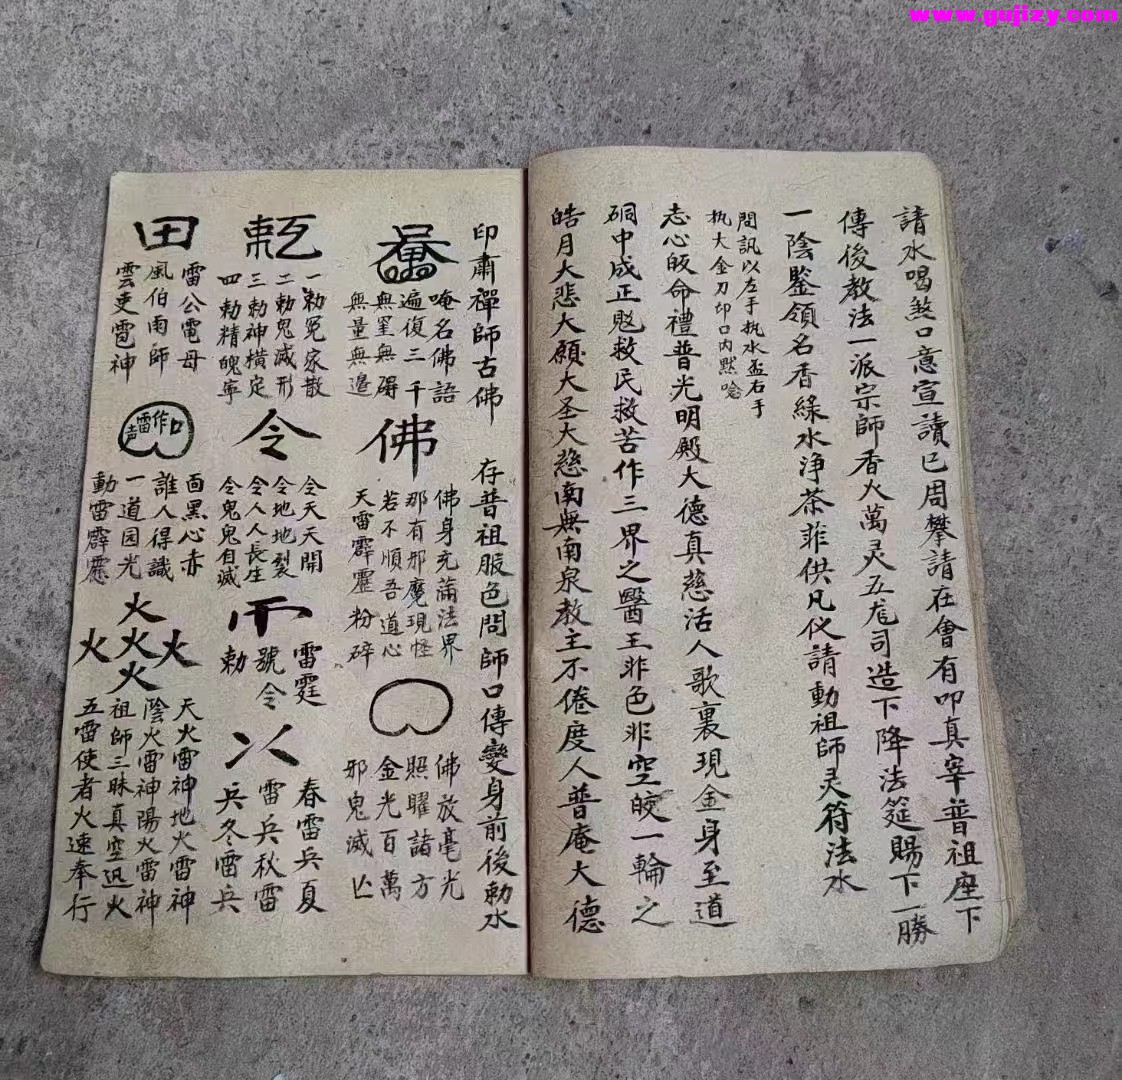 www.gujizy.com
請水喝煞口意宣讀已周攀請在會有叩真宰普祖座下
傳後教法一派宗師香火萬灵五尨司造下降法筵賜下一勝
一陰鑒領名香綠水净茶菲供凡仪請動祖師灵符法水
問訊以左手执水盃右手
执大金刀印口内黙唸
志心皈命禮普光明殿大德真慈活人歌裏現金身至道
硐中成正覐救民救苦作三界之醫王非色非空皎一輪之
皓月大悲大願大圣大慈南無南泉教主不倦度人普庵大德
印肅禪師古佛 存普祖服色問師口傳變身前後勅水
唵名佛語
遍復三千
無罣無碍
無量無邉
佛
佛身充滿法界
那有邪魔現怪
若不順吾道心
天雷霹靂粉碎
佛放毫光
照曜諸方
金光百萬
邪鬼滅亾
一勅冤家散
二勅鬼滅形
三勅神橫定
四勅精魄寧
令
令天天開
令地地裂
令人人長生
令鬼鬼自滅
雷霆
號令
勅
春雷兵夏
雷兵秋雷
兵冬雷兵
田
雷公電母
風伯雨師
雲吏雹神
口作雷声
面黑心赤
誰人得識
一道园光
動雷霹靂
火
火火火
火
天火雷神地火雷神
陰火雷神陽火雷神
祖師三昧真空迅火
五雷使者火速奉行